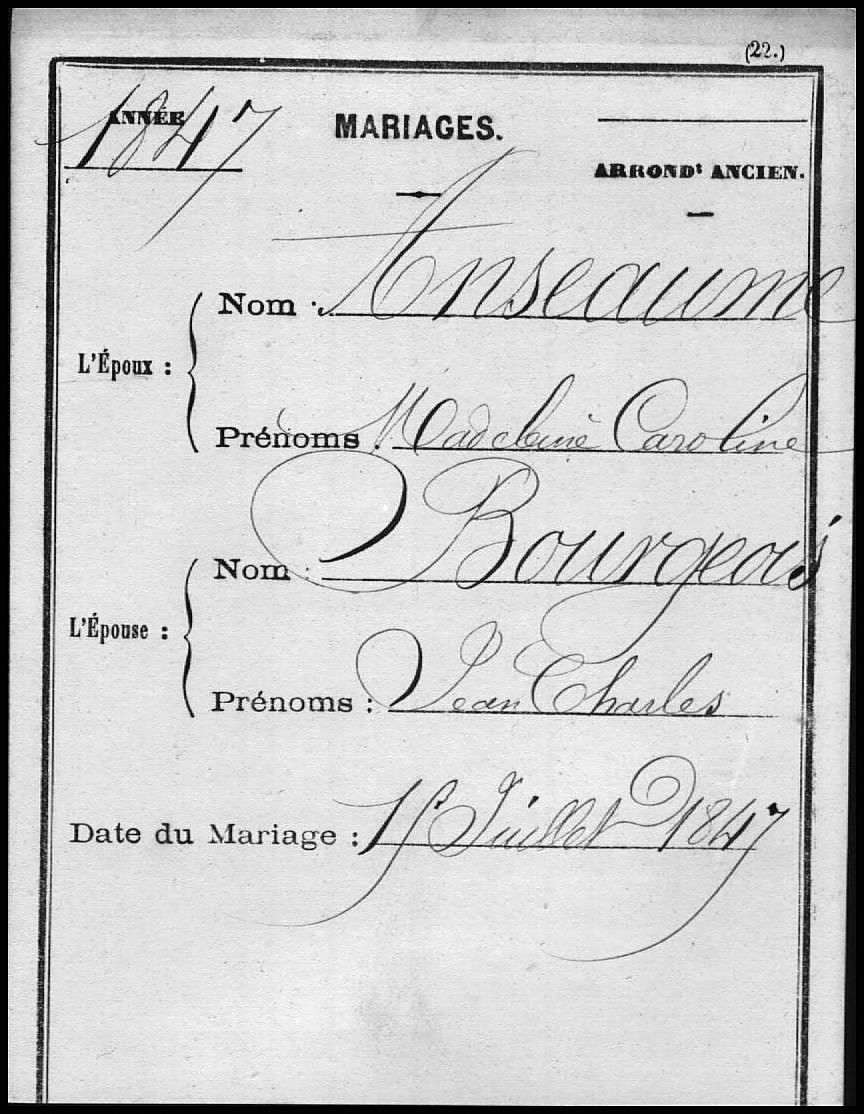 (22.)
ANNÉE 1847
MARIAGES.
ARRONDt ANCIEN.
L'Époux :
Nom : Anseaume
Prénoms : Madeleine Caroline
L'Épouse :
Nom : Bourgeois
Prénoms : Jean Charles
Date du Mariage : Juillet 1847